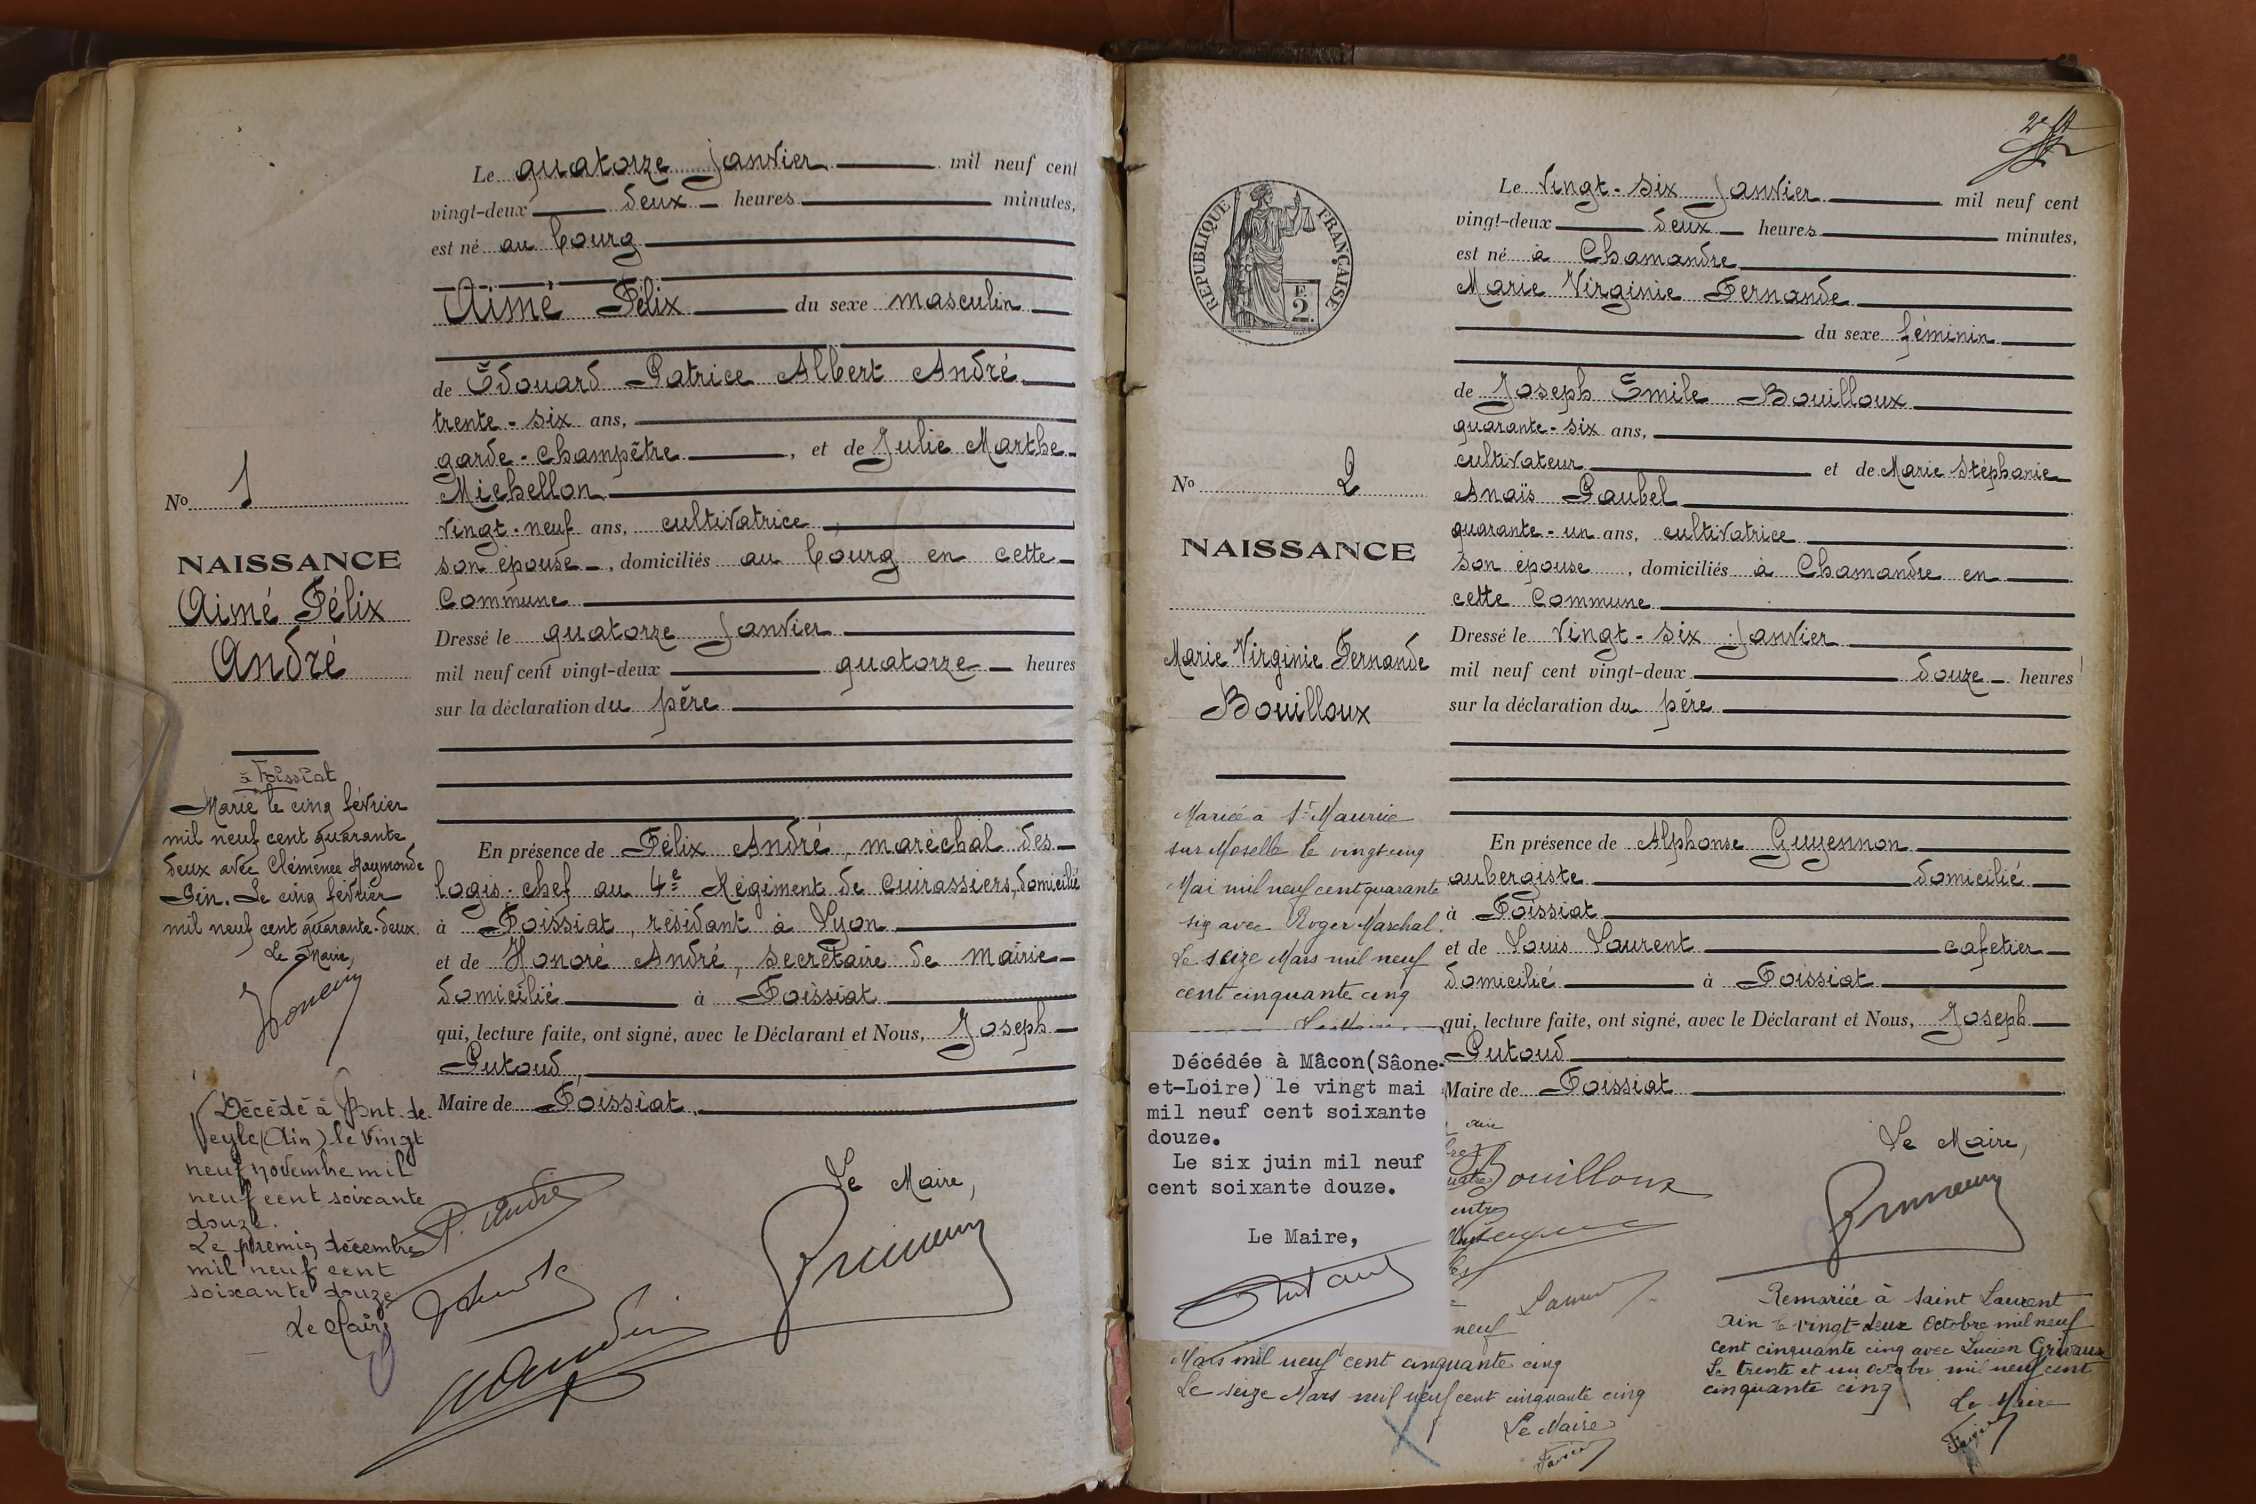 Le quatorze janvier mil neuf cent
vingt-deux deux heures minutes,
est né au bourg
Aimé Félix du sexe masculin
de Édouard Patrice Albert André
trente-six ans,
garde-champêtre, et de Julie Marthe
Michellon
vingt-neuf ans, cultivatrice
son épouse, domiciliés au bourg en cette
Commune
Dressé le quatorze janvier
mil neuf cent vingt-deux quatorze heures
sur la déclaration du père
En présence de Félix André, maréchal des
logis-chef au 4e Régiment de Cuirassiers, domicilié
à Foissiat, résidant à Lyon
et de Honoré André, secrétaire de mairie
domicilié à Foissiat
qui, lecture faite, ont signé, avec le Déclarant et Nous, Joseph
Putoud,
Maire de Foissiat.
Le Maire,
No 1
NAISSANCE
Aimé Félix
André
à Foissiat
Marié le cinq février
mil neuf cent quarante
deux avec Clémence Raymonde
Gin. Le cinq février
mil neuf cent quarante-deux.
Le Maire,
Décédé à Pont-de-
Veyle (Ain) le vingt
neuf novembre mil
neuf cent soixante
douze.
Le premier décembre
mil neuf cent
soixante douze
Le Maire
2e
REPUBLIQUE FRANÇAISE
2
Le vingt-six janvier mil neuf cent
vingt-deux deux heures minutes,
est né à Chamandre
Marie Virginie Fernande
du sexe féminin
de Joseph Émile Bouilloux
quarante-six ans,
cultivateur et de Marie Stéphanie
Anaïs Paubel
quarante-un ans, cultivatrice
son épouse, domiciliés à Chamandre en
cette Commune
Dressé le vingt-six janvier
mil neuf cent vingt-deux douze heures
sur la déclaration du père
En présence de Alphonse Guyennon
aubergiste domicilié
à Foissiat
et de Louis Laurent cafetier
domicilié à Foissiat
qui, lecture faite, ont signé, avec le Déclarant et Nous, Joseph
Putoud
Maire de Foissiat
Le Maire,
Bouilloux
No 2
NAISSANCE
Marie Virginie Fernande
Bouilloux
Mariée à St Maurice
sur Moselle le vingt cinq
Mai mil neuf cent quarante
six avec Roger Marchal.
Le seize Mars mil neuf
cent cinquante cinq
Décédée à Mâcon(Sâone-
et-Loire) le vingt mai
mil neuf cent soixante
douze.
Le six juin mil neuf
cent soixante douze.
Le Maire,
neuf
Mars mil neuf cent cinquante cinq
Le seize Mars mil neuf cent cinquante cinq
Le Maire
Remariée à Saint Laurent
Ain le vingt-deux Octobre mil neuf
cent cinquante cinq avec Lucien Grivaux
Le trente et un octobre mil neuf cent
cinquante cinq
Le Maire